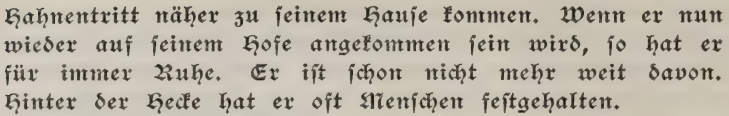 Hahnentritt näher zu seinem Hause kommen. Wenn er nun
wieder auf seinem Hofe angekommen sein wird, so hat er
für immer Ruhe. Er ist schon nicht mehr weit davon.
Hinter der Hecke hat er oft Menschen festgehalten.